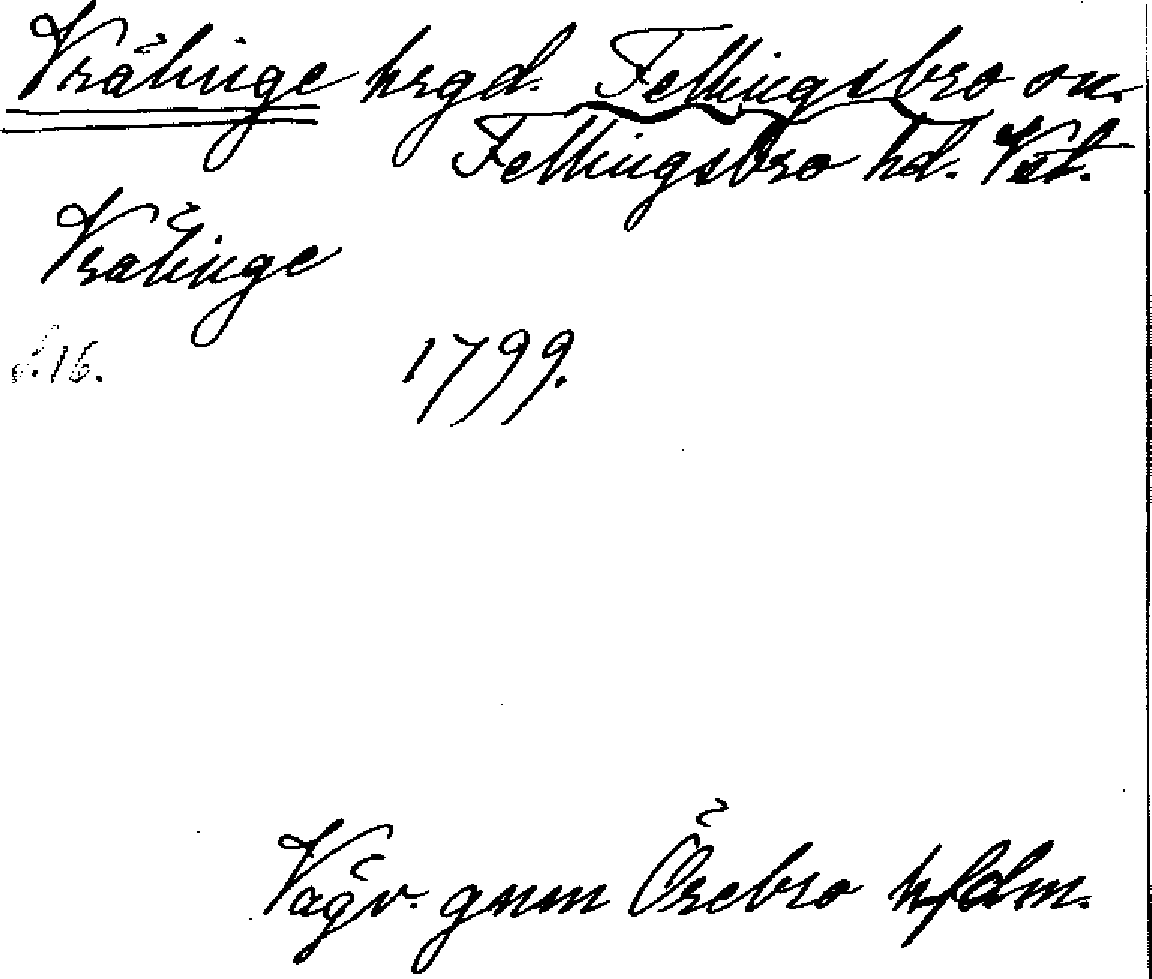 Vrälinge hrgd. Fellingsbro sn.
Fellingsbro hd. Vstl.
Vrälinge
s. 16. 1799.
Vägv. gnm Örebro hfdm.